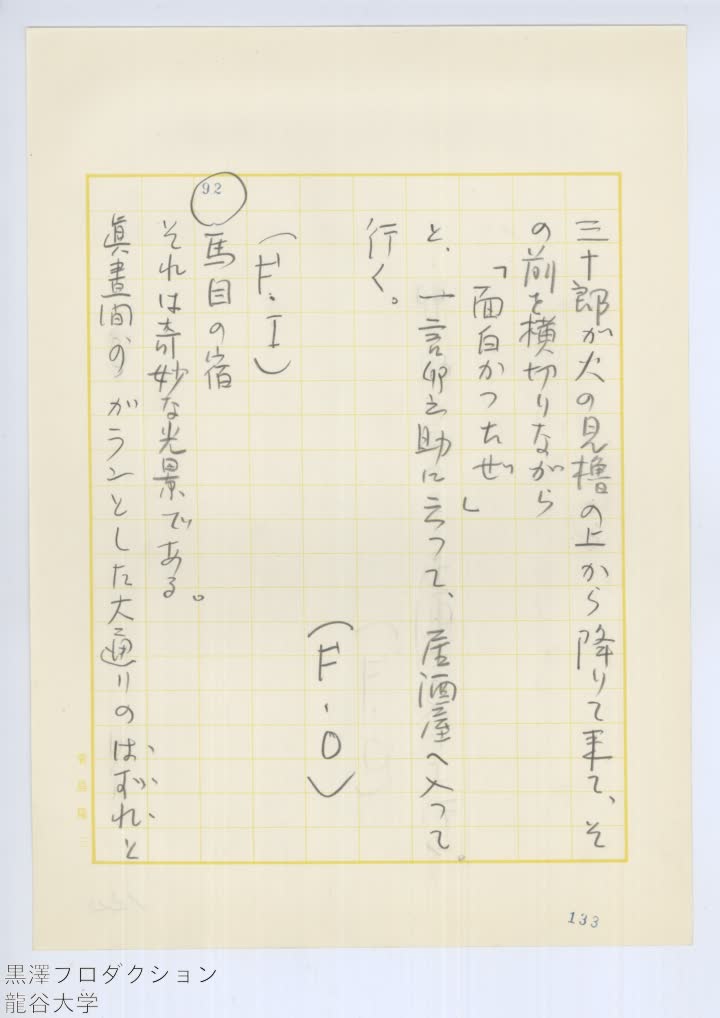 三十郎が火の見櫓の上から降りて来て、そ
の前を横切りながら
「面白かつたぜ」
と、一言卯之助に云つて、居酒屋へ入つて
行く。
(F・O)
(F・I)
92
馬目の宿
それは奇妙な光景である。
眞晝間のガランとした大通りのはずれと
133
黒澤プロダクション
龍谷大学